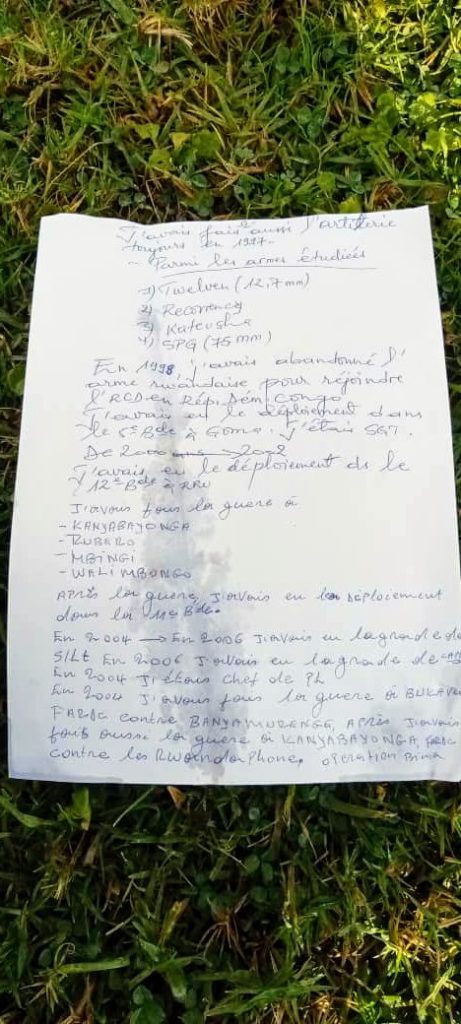 J'avais fait aussi l'artillerie
toujours en 1997-
- Parmi les armes étudiées
1) Twelven (12,7mm)
2) Recorrency
3) Kateusha
4) SPG (75 mm)
En 1998, j'avais abandonné l'
armé rwandaise pour réjoindre
l'RCD en Rép. Dém. Congo
J'avais eu le déploiement dans
le 5e Bde à Goma. j'étais SGT.
De 2000 2002
J'avais eu le déploiement ds le
12e Bde à
J'avous fous la guere à
- KANYABAYONGA
- RUBERO
- MBINGI
- WALIMBONGO
APRÈS la guere, J'avais eu la DÉPLOIEMENT
dans la 11e Bde.
En 2004 → En 2006 J'avais eu la grade de
S/Lt En 2006 J'avais eu la grade de
En 2004 J'étais chef de PL
En 2004 J'avous fous la guere à
FARDC contre BANYAMULENGE, APRÈS J'avais
fous oussi la guere à KANYABAYONGA,
contre les RwandaPhone. opération Bima